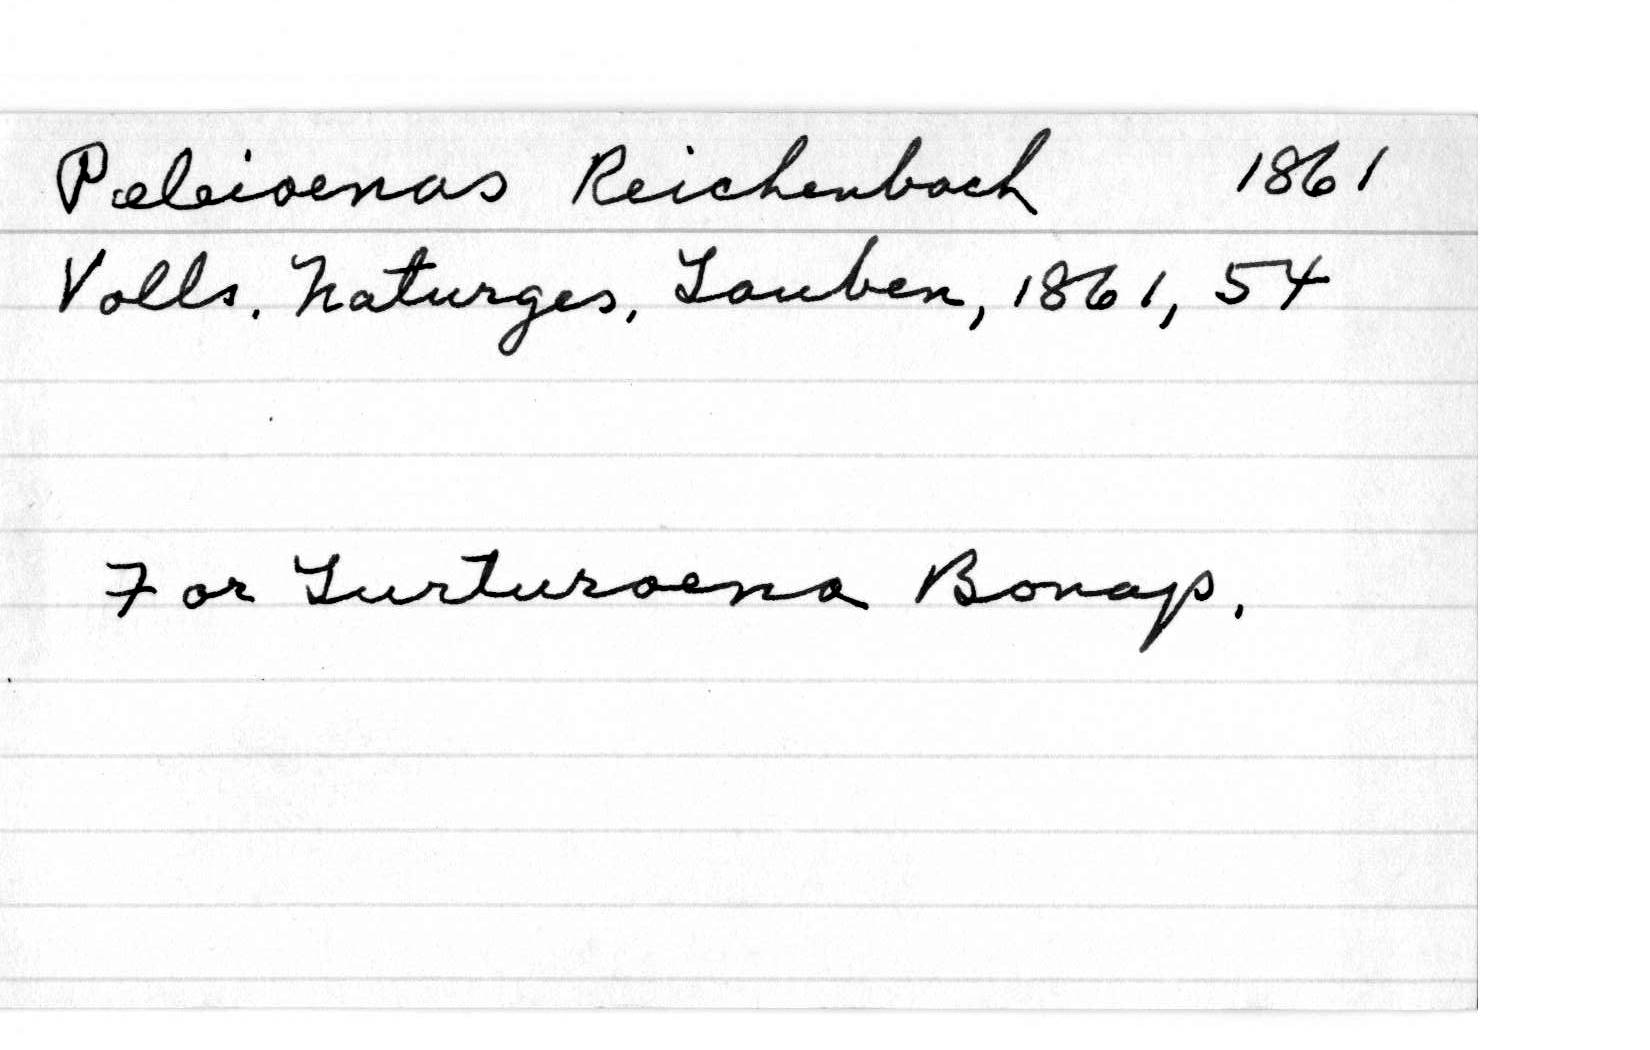 Peleioenas Reichenbach 1861
Volls. Naturges, Tauben, 1861, 54
For Turturoena Bonap.